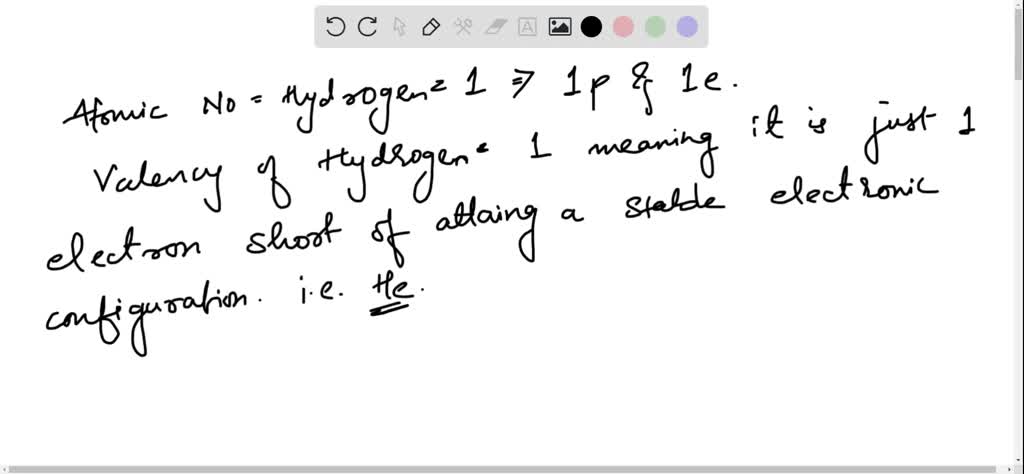 Atomic No = Hydrogen = 1 ⇒ 1p & 1e.
Valency of Hydrogen = 1 meaning it is just 1
electron short of attaing a stable electronic
configuration. i.e. He.